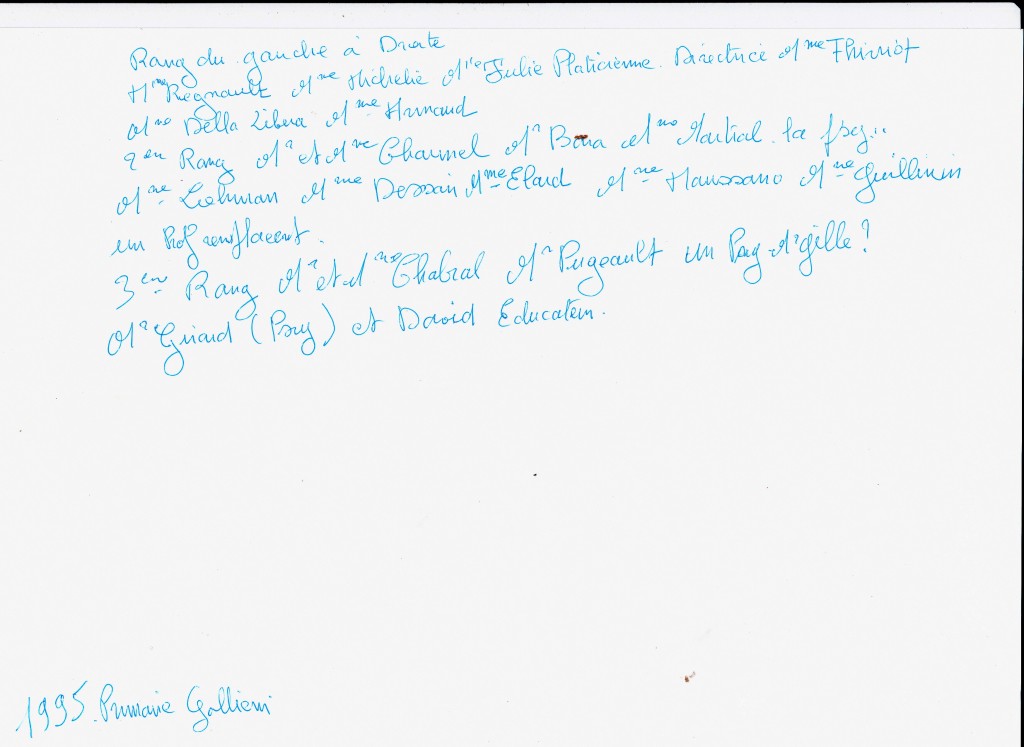 Rang du gauche à Droite
Mme Regnault Mme Michelie Mlle Julie Platicienne. Directrice Mme Thiriot
Mme Della Libera Mme Arnaud
2en Rang Mr et Mme Charmel Mr Bora Mme Martial. la psy..
Mme Lehman Mme Dessain Mme Elard Mme Haussano Mme Guillinin
un Prof remplacent.
3em Rang Mr et Mme Chabral Mr Pugeault un Psy Mr gille?
Mr Girard (Psy) et David Educateur.
1995. Primaire Gallieni